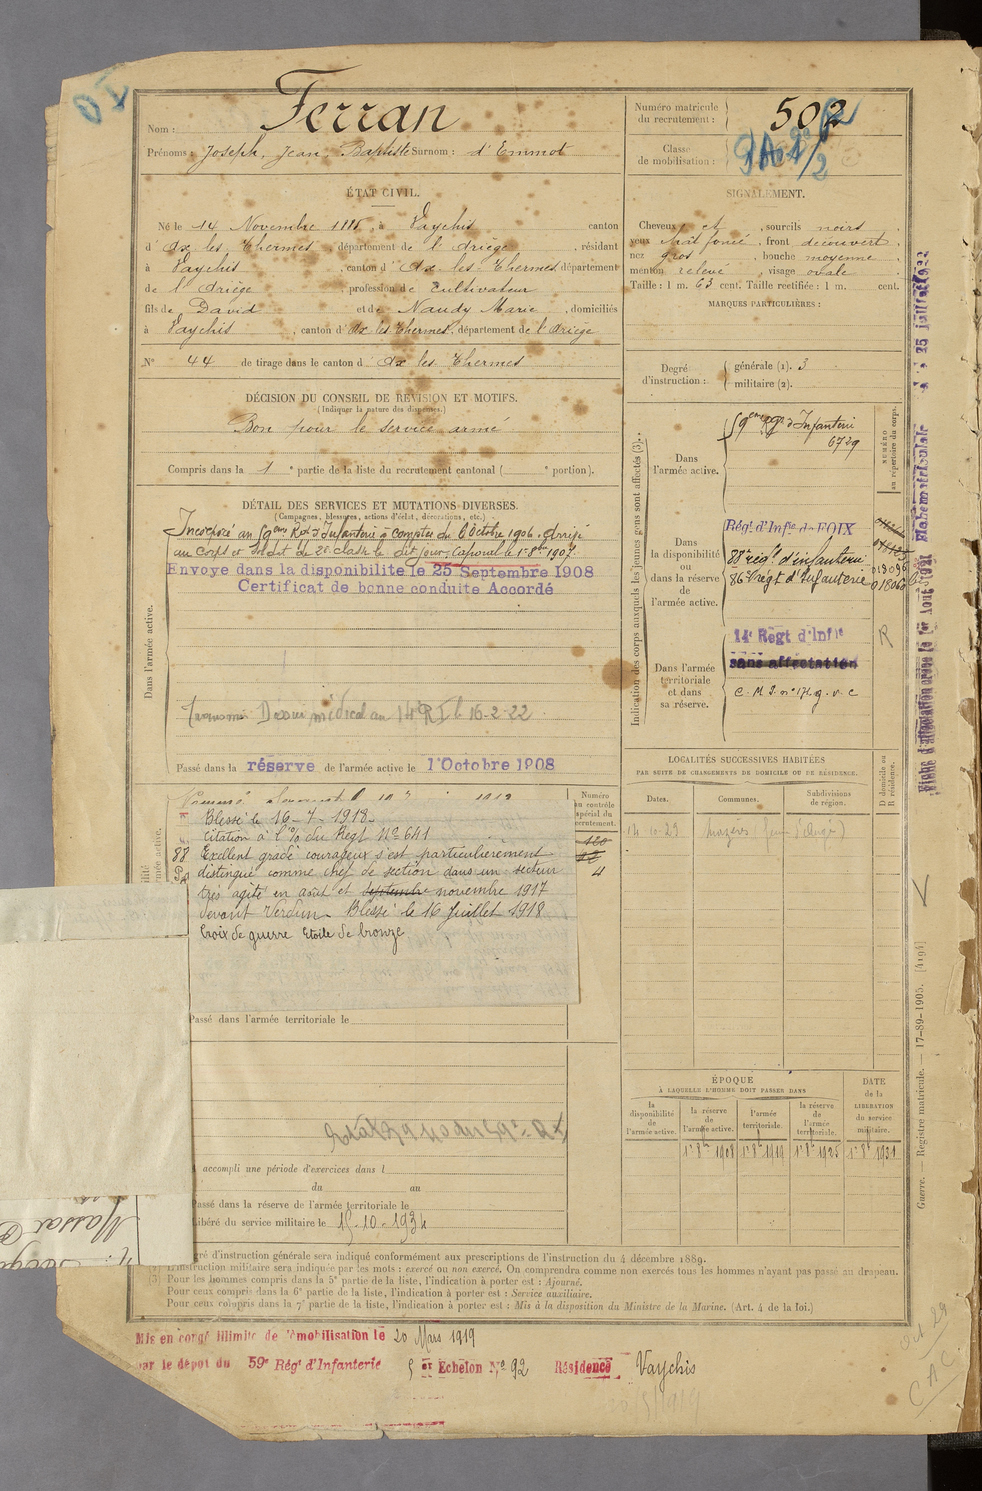 Nom : Ferran
Prénoms : Joseph, Jean, Baptiste Surnom : d'Emmot
Numéro matricule du recrutement : 502
Classe de mobilisation :
ÉTAT CIVIL.
Né le 14 Novembre 1885, à Vaychis canton
d'Ax les Thermes, département de l'Ariège, résidant
à Vaychis, canton d'Ax-les-Thermes, département
de l'Ariège, profession de Cultivateur
fils de David et de Naudy Marie, domiciliés
à Vaychis, canton d'Ax les Thermes, département de l'Ariège
N° 44 de tirage dans le canton d'Ax les Thermes
SIGNALEMENT.
Cheveux et, sourcils noirs
yeux chât foncé, front découvert,
nez gros, bouche moyenne
menton relevé, visage ovale
Taille : 1 m. 63 cent. Taille rectifiée : 1 m. cent.
MARQUES PARTICULIÈRES :
Degré d'instruction :
générale (1). 3
militaire (2).
DÉCISION DU CONSEIL DE RÉVISION ET MOTIFS.
(Indiquer la nature des dispenses.)
Bon pour le service armé
Compris dans la 1e partie de la liste du recrutement cantonal ( e portion).
DÉTAIL DES SERVICES ET MUTATIONS DIVERSES.
(Campagnes, blessures, actions d'éclat, décorations, etc.)
Dans l'armée active.
Incorporé au 59eme Regt d'Infanterie à compter du 6 Octobre 1906. Arrivé
au Corps et Soldat de 2e classe le dit jour. Caporal le 1er 8bre 1907
Envoyé dans la disponibilité le 25 Septembre 1908
Certificat de bonne conduite Accordé
Dossier médical au 14e RI le 16-2-22
Passé dans la réserve de l'armée active le 1 Octobre 1908
Indication des corps auxquels les jeunes gens sont affectés (3).
NUMÉRO au répertoire du corps.
Dans l'armée active.
59eme Rgt d'Infanterie
6729
Dans la disponibilité ou dans la réserve de l'armée active.
Régt d'Infie de FOIX
88e régt d'infanterie 013096
86e régt d'Infanterie 018060
Dans l'armée territoriale et dans sa réserve.
14e Régt d'Infie
sans affectation
R
LOCALITÉS SUCCESSIVES HABITÉES
PAR SUITE DE CHANGEMENTS DE DOMICILE OU DE RÉSIDENCE.
Dates. Communes. Subdivisions de région. D domicile ou R résidence.
Numéro au contrôle spécial du recrutement.
120
4
Blessé le 16-7-1918.
Citation à l'% du Régt N° 641
Excellent gradé courageux s'est particulièrement
distingué comme chef de section dans un secteur
très agité en août et septembre novembre 1917
devant Verdun. Blessé le 16 Juillet 1918
Croix de guerre Etoile de bronze.
Passé dans l'armée territoriale le
accompli une période d'exercices dans l
du au
Passé dans la réserve de l'armée territoriale le
Libéré du service militaire le 15-10-1934
ÉPOQUE
À LAQUELLE L'HOMME DOIT PASSER DANS
la disponibilité de l'armée active.
la réserve de l'armée active.
l'armée territoriale.
la réserve de l'armée territoriale.
DATE de la LIBÉRATION du service militaire.
1er 8bre 1908
1er 8bre 1919
1er 8bre 1925
1er 8bre 1931
gré d'instruction générale sera indiqué conformément aux prescriptions de l'instruction du 4 décembre 1889.
instruction militaire sera indiquée par les mots : exercé ou non exercé. On comprendra comme non exercés tous les hommes n'ayant pas passé au drapeau.
(3) Pour les hommes compris dans la 5e partie de la liste, l'indication à porter est : Ajourné.
Pour ceux compris dans la 6e partie de la liste, l'indication à porter est : Service auxiliaire.
Pour ceux compris dans la 7e partie de la liste, l'indication à porter est : Mis à la disposition du Ministre de la Marine. (Art. 4 de la loi.)
Mis en congé illimité de démobilisation le 20 Mars 1919
par le dépôt du 59e Régt d'Infanterie 5 er Echelon No 92 Résidence Vaychis
Guerre. — Registre matricule. — 17-89-1905. [4194]